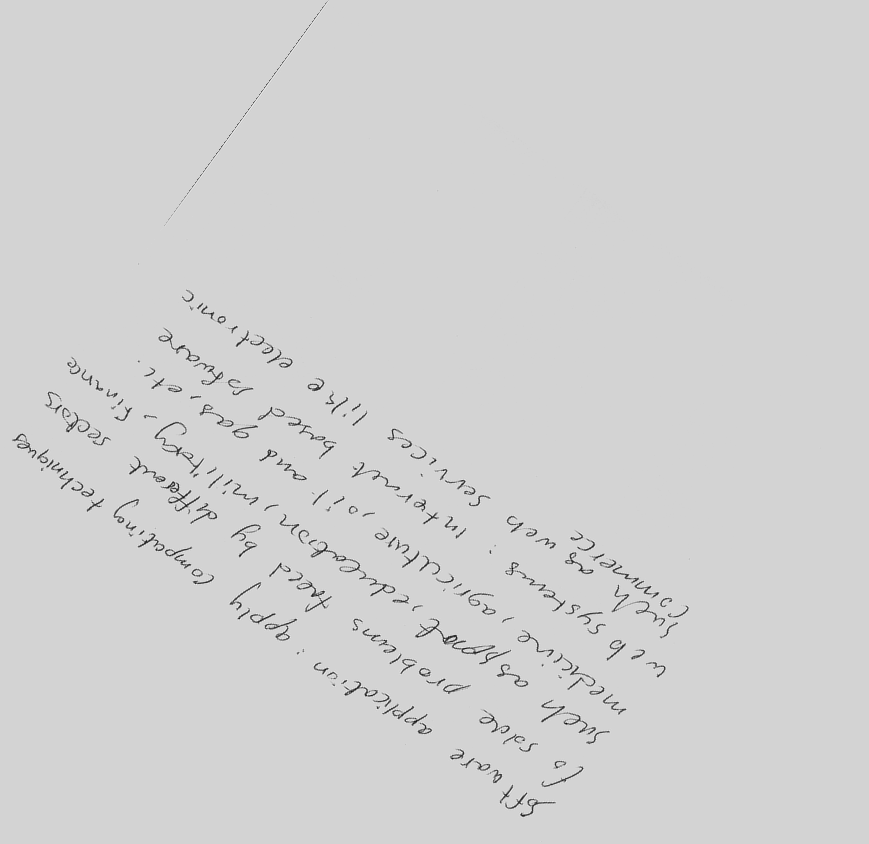 Software application : apply computing techniques
to solve problems faced by different sectors
such as sport, education, millitary, finance
medicine, agriculture, oil and gas, etc.
web systems : internet based software
such as web services like electronic
commerce